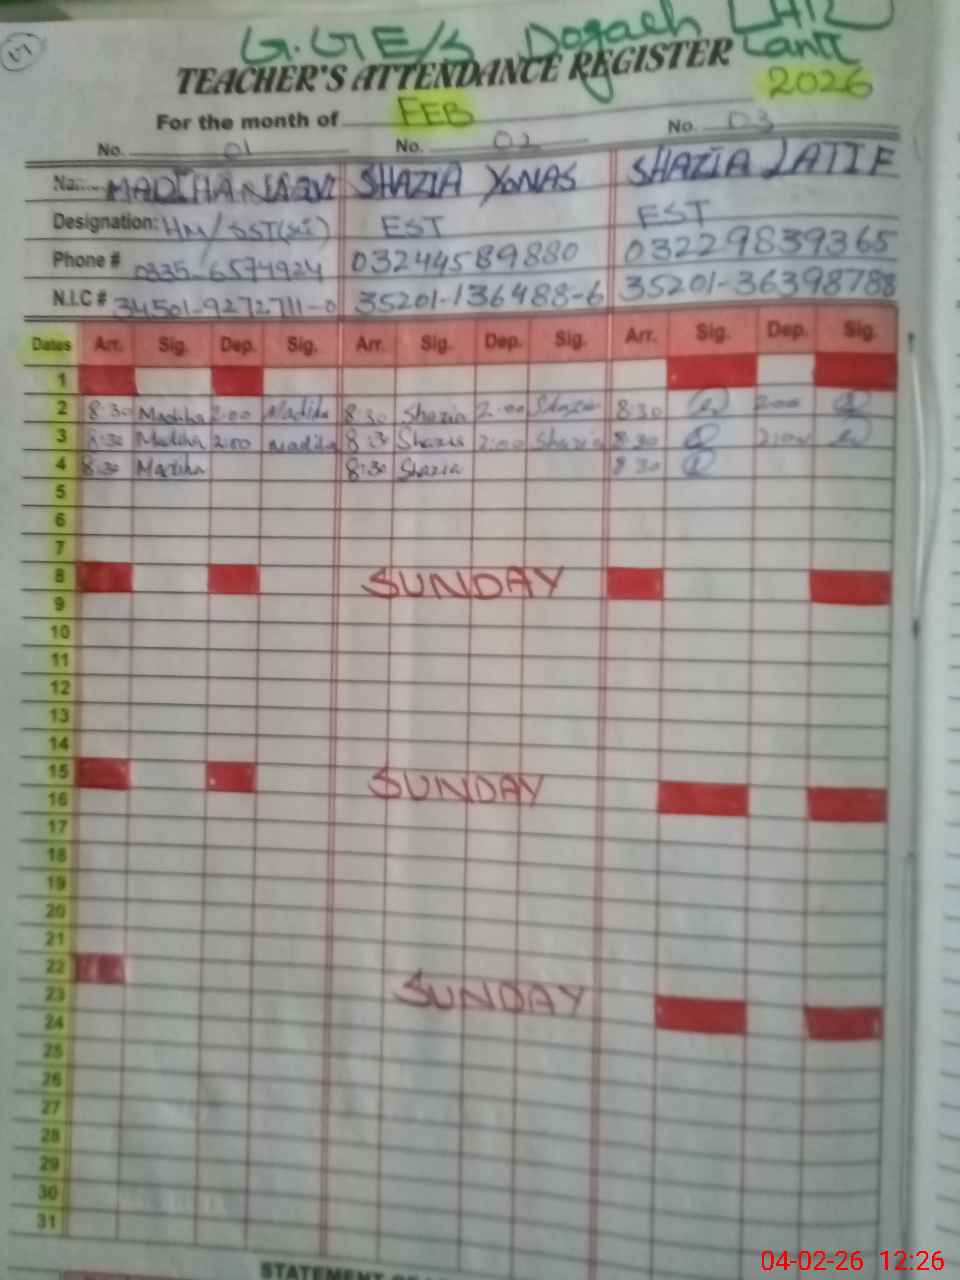 17
G.GE/S Dogach LHR
Cantt
TEACHER'S ATTENDANCE REGISTER
2026
For the month of FEB
No. 01 No. 02 No. 03
MADIHA NAQVI SHAZIA YONAS SHAZIA LATIF
Designation: HM/SST(sci) EST EST
Phone # 0335-6574924 03244589880 03229839365
N.I.C # 34501-9272711-0 35201-136488-6 35201-36398788
Dates Arr. Sig. Dep. Sig. Arr. Sig. Dep. Sig. Arr. Sig. Dep. Sig.
1
2 8:30 Madiha 2:00 Madiha 8:30 Shazia 2:00 Shazia 8:30 2:00
3 8:30 Madiha 2:00 Madiha 8:30 Shazia 2:00 Shazia 8:30 2:00
4 8:30 Madiha 8:30 Shazia 8:30
5
6
7
8 SUNDAY
9
10
11
12
13
14
15 SUNDAY
16
17
18
19
20
21
22
23 SUNDAY
24
25
26
27
28
29
30
31
STATEMENT
04-02-26 12:26